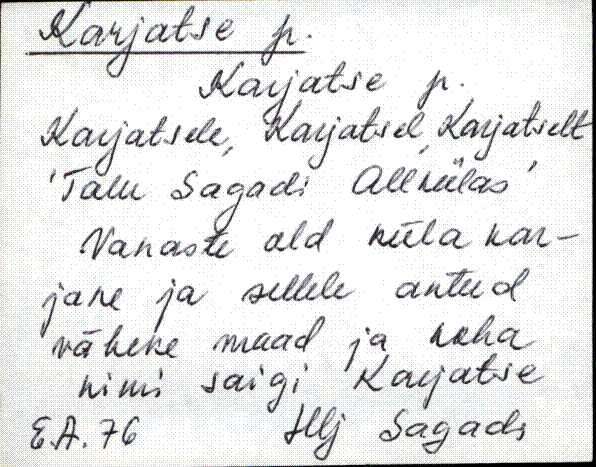 Karjatse p.
Karjatse p.
Karjatsele, Karjatsel, Karjatselt
'Talu Sagadi Allkülas'
Vanaste old küla kar-
jane ja sellele antud
väheke maad ja koha
nimi saigi Karjatse
E.A. 76 Hlj Sagadi